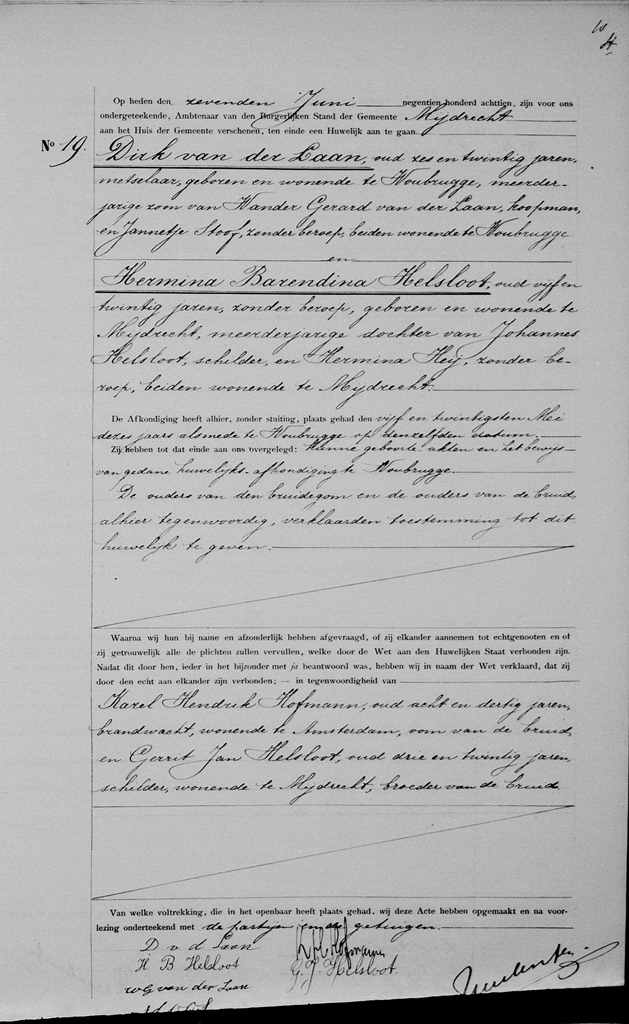 Op heden den zevenden Juni negentien honderd achttien, zijn voor ons
ondergeteekende, Ambtenaar van den Burgerlijken Stand der Gemeente Mijdrecht
aan het Huis der Gemeente verschenen, ten einde een Huwelijk aan te gaan.
No 19. Dirk van der Laan, oud zes en twintig jaren,
metselaar, geboren en wonende te Woubrugge, meerder-
jarige zoon van Wander Gerard van der Laan, koopman,
en Jannetje Stoof, zonder beroep, beiden wonende te Woubrugge
en
Hermina Barendina Helsloot, oud vijf en
twintig jaren, zonder beroep, geboren en wonende te
Mijdrecht, meerderjarige dochter van Johannes
Helsloot, schilder, en Hermina Hey, zonder be-
roep, beiden wonende te Mijdrecht.
De Afkondiging heeft alhier, zonder stuiting, plaats gehad den vijf en twintigsten Mei
dezes jaars alsmede te Woubrugge op denzelfden datum.
Zij hebben tot dat einde aan ons overgelegd: Hunne geboorte akten en het bewijs
van gedane huwelijks-afkondiging te Woubrugge.
De ouders van den bruidegom en de ouders van de bruid,
alhier tegenwoordig, verklaarden toestemming tot dit
huwelijk te geven.
Waarna wij hun bij name en afzonderlijk hebben afgevraagd, of zij elkander aannemen tot echtgenooten en of
zij getrouwelijk alle de plichten zullen vervullen, welke door de Wet aan den Huwelijken Staat verbonden zijn.
Nadat dit door hen, ieder in het bijzonder met ja beantwoord was, hebben wij in naam der Wet verklaard, dat zij
door den echt aan elkander zijn verbonden; — in tegenwoordigheid van
Karel Hendrik Hofmann, oud acht en dertig jaren,
brandwacht, wonende te Amsterdam, oom van de bruid,
en Gerrit Jan Helsloot, oud drie en twintig jaren,
schilder, wonende te Mijdrecht, broeder van de bruid.
Van welke voltrekking, die in het openbaar heeft plaats gehad, wij deze Acte hebben opgemaakt en na voor-
lezing onderteekend met de partijen en de getuigen.
D v d Laan K H Hofmann
H B Helsloot G. J. Helsloot.
W G van der Laan